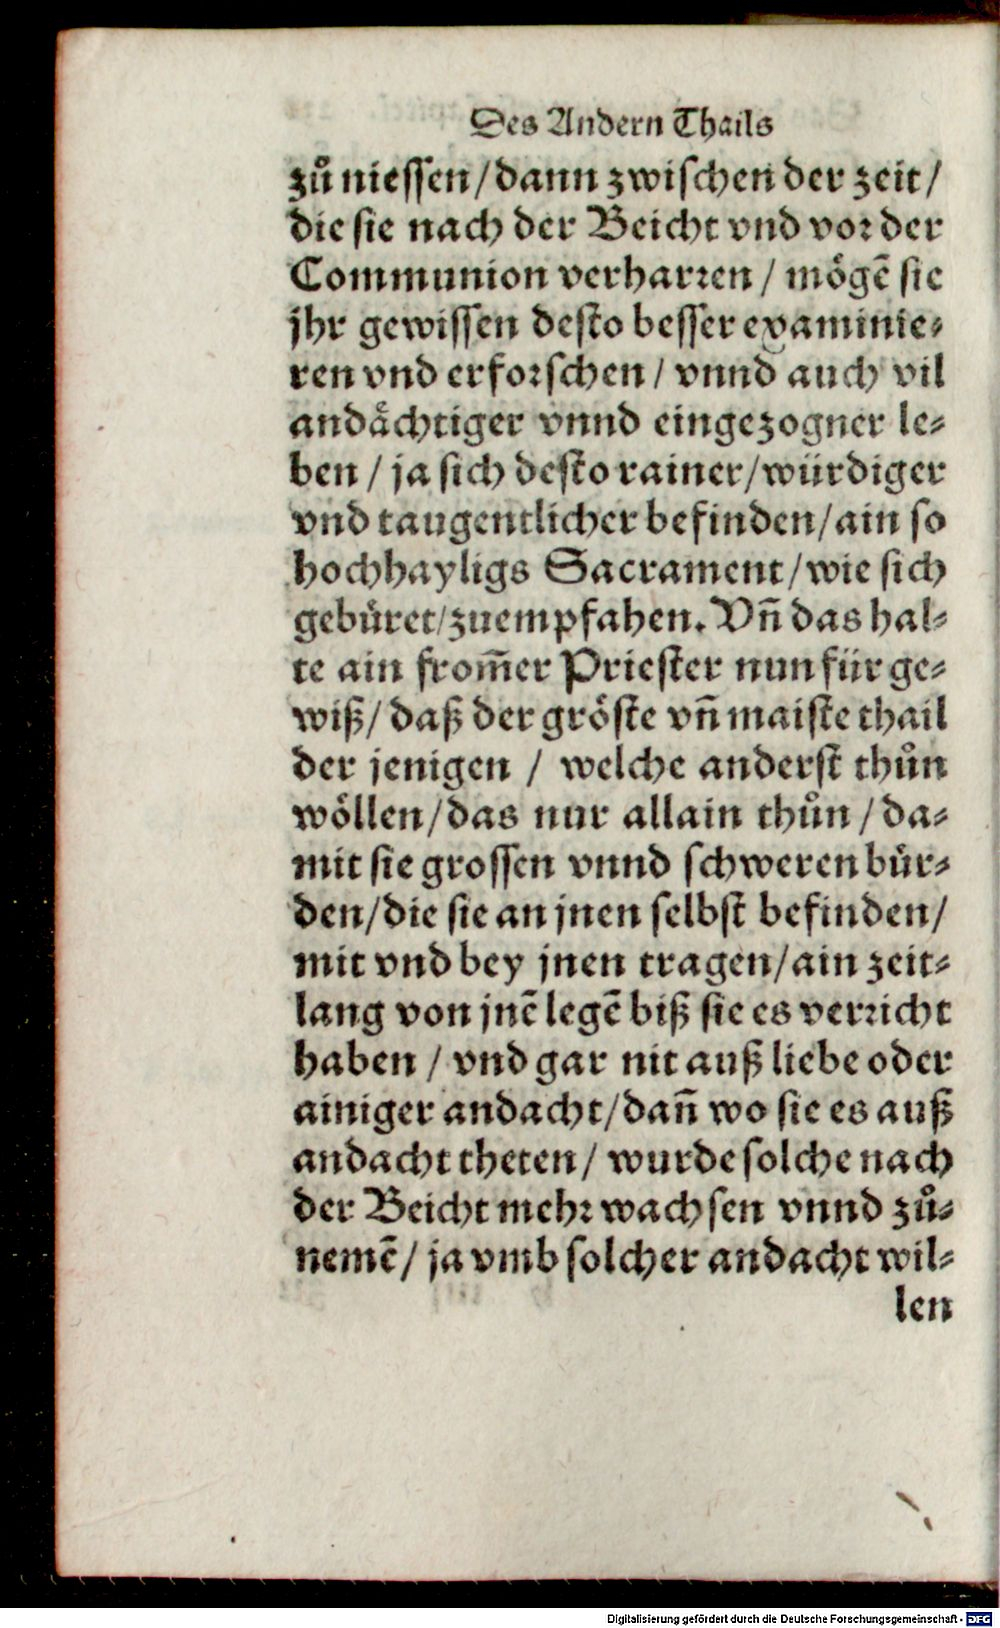 Des Andern Thails
zů niessen/dann zwischen der zeit/
die sie nach der Beicht vnd vor der
Communion verharren / mögē sie
jhr gewissen desto besser examinie⸗
ren vnd erforschen / vnnd auch vil
andächtiger vnnd eingezogner le⸗
ben / ja sich desto rainer/würdiger
vnd taugentlicher befinden/ain so
hochhayligs Sacrament/wie sich
gebüret/zuempfahen. Vn̄ das hal⸗
te ain from̄er Priester nun für ge⸗
wiß/ daß der gröste vn̄ maiste thail
der jenigen / welche anderst thůn
wöllen/das nur allain thůn / da⸗
mit sie grossen vnnd schweren bür⸗
den/die sie an jnen selbst befinden/
mit vnd bey jnen tragen/ain zeit⸗
lang von jnē legē biß sie es verricht
haben / vnd gar nit auß liebe oder
ainiger andacht/dan̄ wo sie es auß
andacht theten/ wurde solche nach
der Beicht mehr wachsen vnnd zů⸗
nemē/ ja vmb solcher andacht wil⸗
len
Digitalisierung gefördert durch die Deutsche Forschungsgemeinschaft - DFG